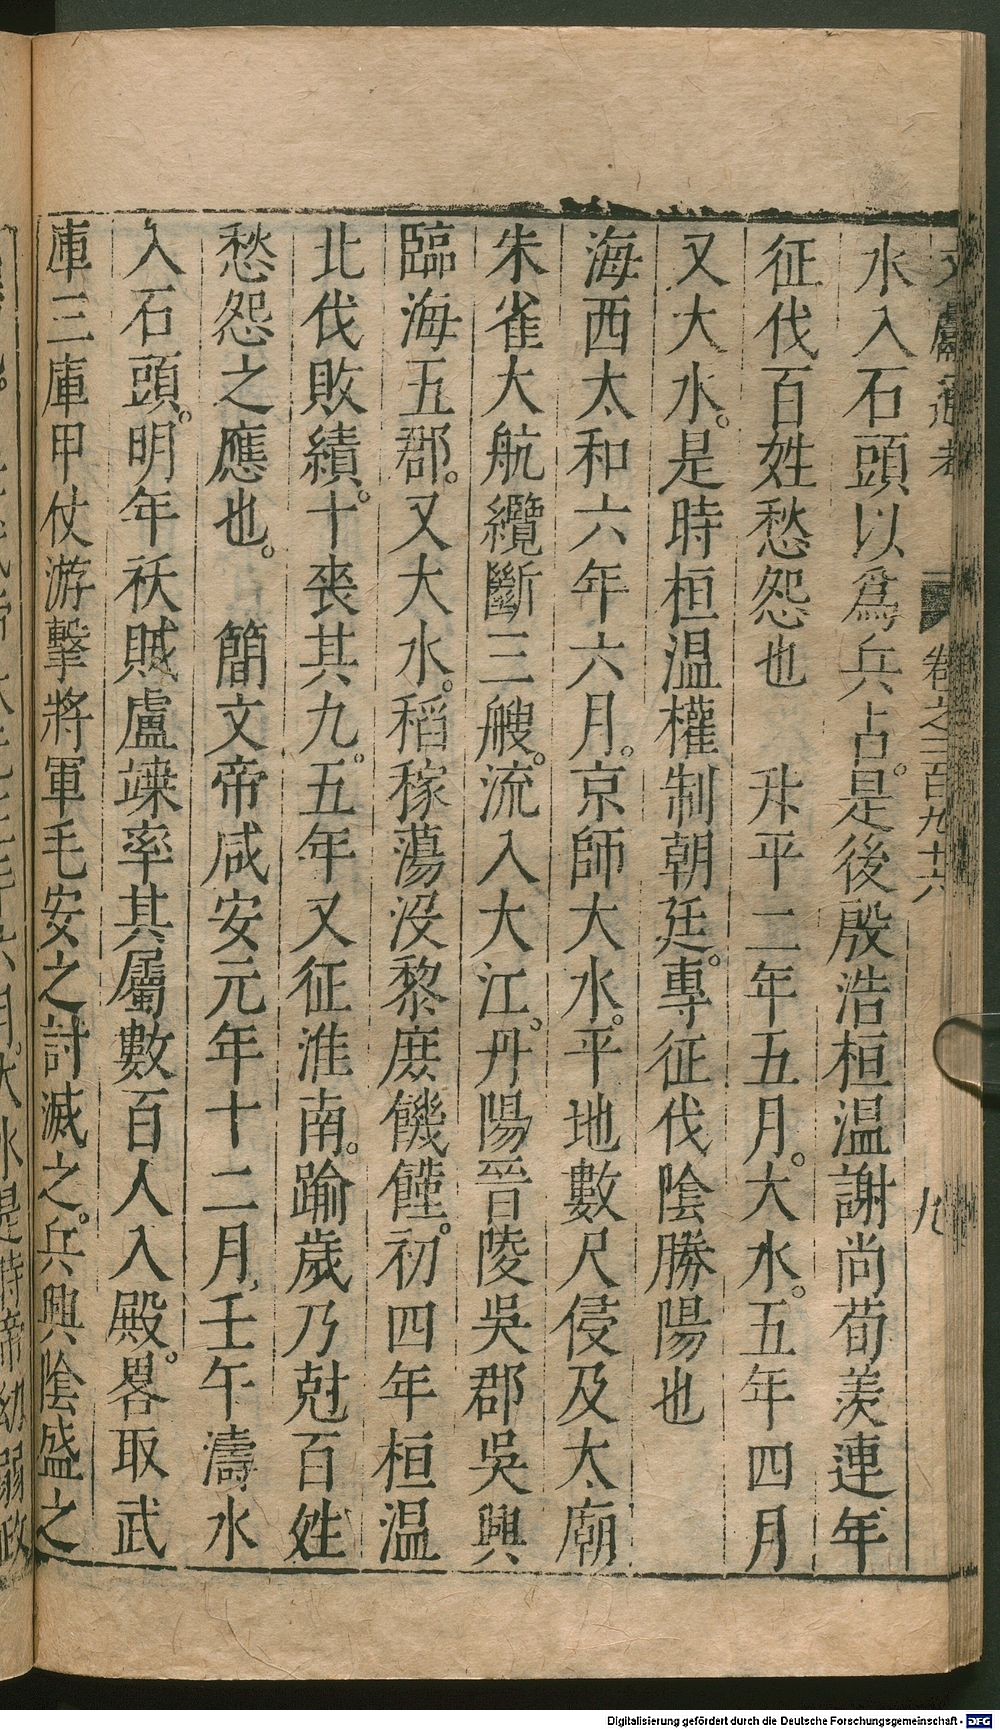 文獻通考 卷之二百九十六 九
水入石頭以爲兵占。是後殷浩桓温謝尚荀羨連年
征伐百姓愁怨也 升平二年五月。大水。五年四月
又大水。是時桓温權制朝廷。專征伐陰勝陽也
海西太和六年六月。京師大水。平地數尺侵及太廟
朱雀大航纜斷三艘。流入大江。丹陽晉陵吳郡吳興
臨海五郡。又大水。稻稼蕩没黎庶饑饉。初四年桓温
北伐敗績。十喪其九。五年又征淮南。踰歲乃尅百姓
愁怨之應也。 簡文帝咸安元年十二月，壬午濤水
入石頭。明年祅賊盧竦率其屬數百人入殿。畧取武
庫三庫甲仗游擊將軍毛安之討滅之。兵興陰盛之
Digitalisierung gefördert durch die Deutsche Forschungsgemeinschaft - DFG